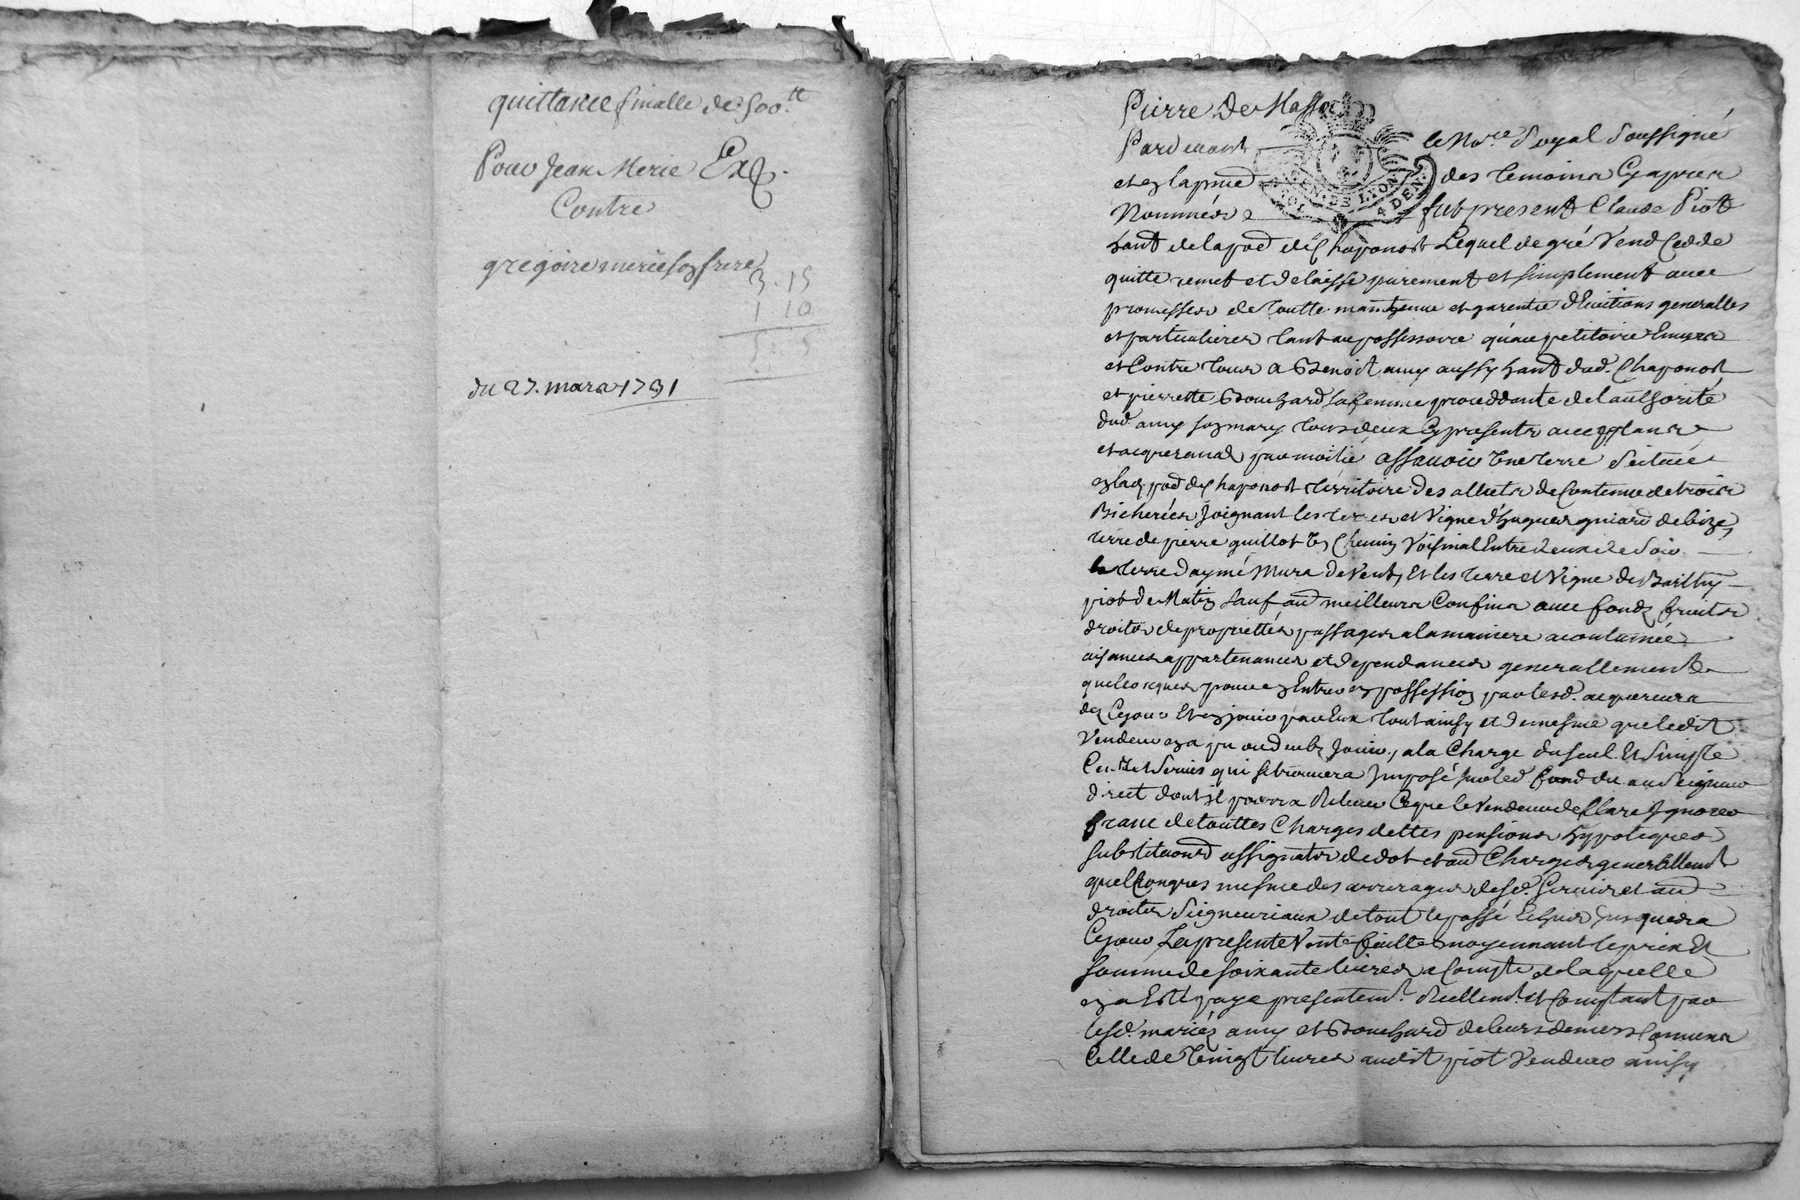 quittance finalle de 500.tt
Pour Jean Merie Exp.
Contre
gregoire merie son frere
3. 15
1 10
5. 5
du 27. mars 1731
Pierre De Masso
Pardevant le No.re Royal soussigné
et en la pnce des temoins Cy apres
Nommés fut present Claude Piot
GEN. DE LYON
4 DEN.
hant de la pod de Chaponost Lequel de gré Vend Cedde
quitte remet et delaisse purement et simplement avec
promesses de toutte maintenue et garentie d'Evictions generalles
et particulieres tant au possessoire qu'au petitoire Envers
et Contre tous a Benoit amy aussy hant dud. Chaponost
et pierrette Bouchard sa femme proceddante de l'authorité
dud amy son mary tous deux Cy presents acceptants
et acquerants par moitié assavoir Une terre scituée
en lad pod de Chaponost territoire des alluets de Contenue de trois
Bicherées Joignant les terres et Vigne d'hugues guiard de bize,
terre de pierre guillot Un Chemin Voisinal Entre deux de soir
la terre d'aymé Mura de Vent, Et les terre et Vigne de Barthy
piot de Matin sauf au meilleurs Confins avec fonds fruits
droits de proprietés passages a la maniere acoutumée
aisances appartenances et dependances generallement
quelconques pour en Entrer en possession par lesd. acquereurs
dez Cejour Et en jouir par Eux tout ainsy et de mesme que ledit
Vendeur en a pu ou deub Jouir, a la Charge du seul Et simple
Cens et servis qui se trouvera Imposé sur led fond du au seigneur
direct dont il pourra Relever Ce que le Vendeur declare Ignorer
franc de touttes Charges dettes pensions hypoteques
substituons assignats de dot et au Charges generallement
quelconques mesme des arrerages desd. servis et au
droits seigneuriaux de tout le passé Echus Jusques a
Cejour La presente Vente faitte moyennant le prix Et
somme de soixante livres a Compte de laquelle
en a Esté payé presentemt. Reellemt. et Comptant par
lesd. mariez amy et Bouchard de leurs deniers Comuns
Celle de Vingt livres audit piot Vendeur ainsy